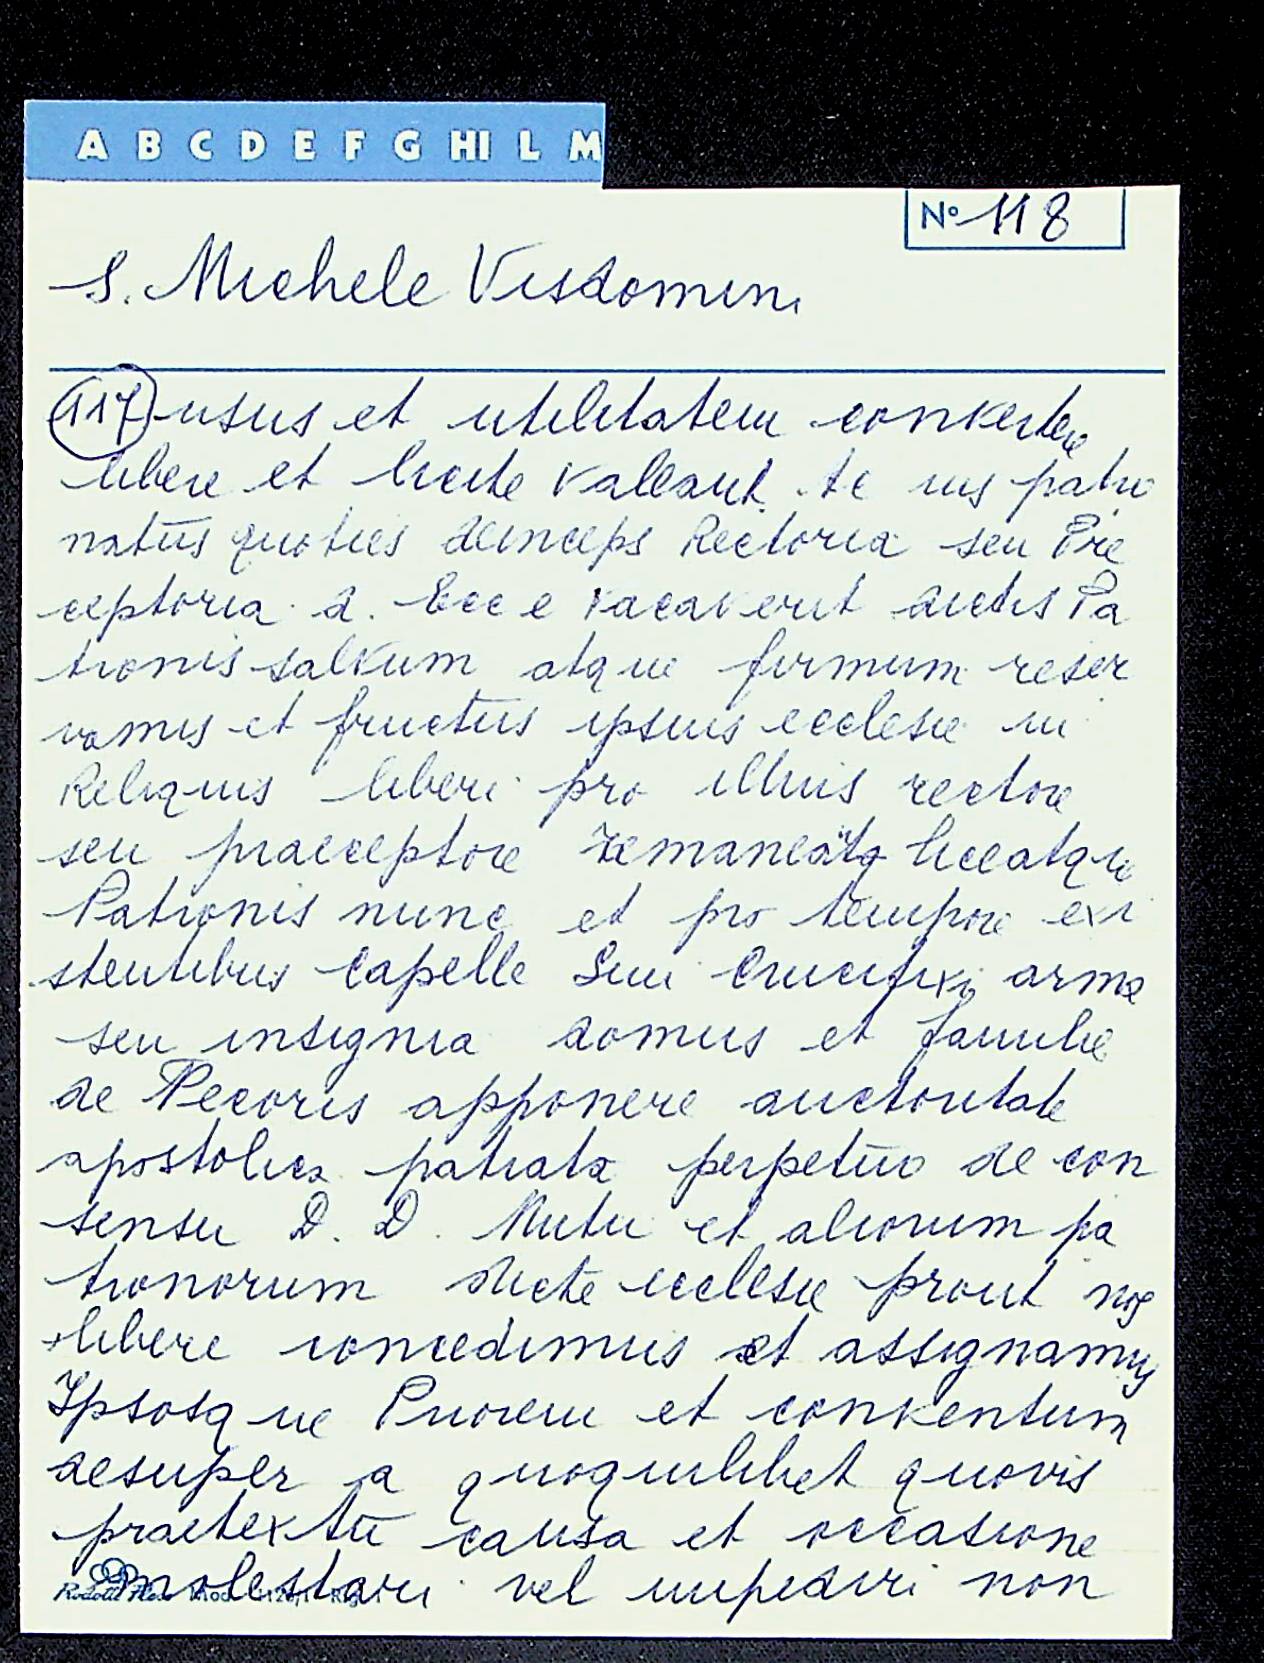 A B C D E F G HI L M
Nº 118
S. Michele Visdomini
(117) usus et utilitatem convertere
libere et licite valeant. Ac ius patro
natus quoties deinceps Rectoria seu Pre
ceptoria d. Ecc e vacaverit dictis Pa
tronis salvum atque firmum reser
vamus et fructus ipsius ecclesie in
Reliquis liberi pro illius rectore
seu praeceptore remaneat liceatque
Patronis nunc et pro tempore exi
stentibus Capelle Smi Crucifixi arma
seu insignia domus et familie
de Pecoris apponere auctoritate
apostolica patrata perpetuo de con
sensu D. D. et aliorum pa
tronorum dicte ecclesie prout nos
libere concedimus et assignamus
Ipsosque Priorem et conventum
desuper a quoquilibet quovis
praetextu causa et occasione
molestari vel impediri non